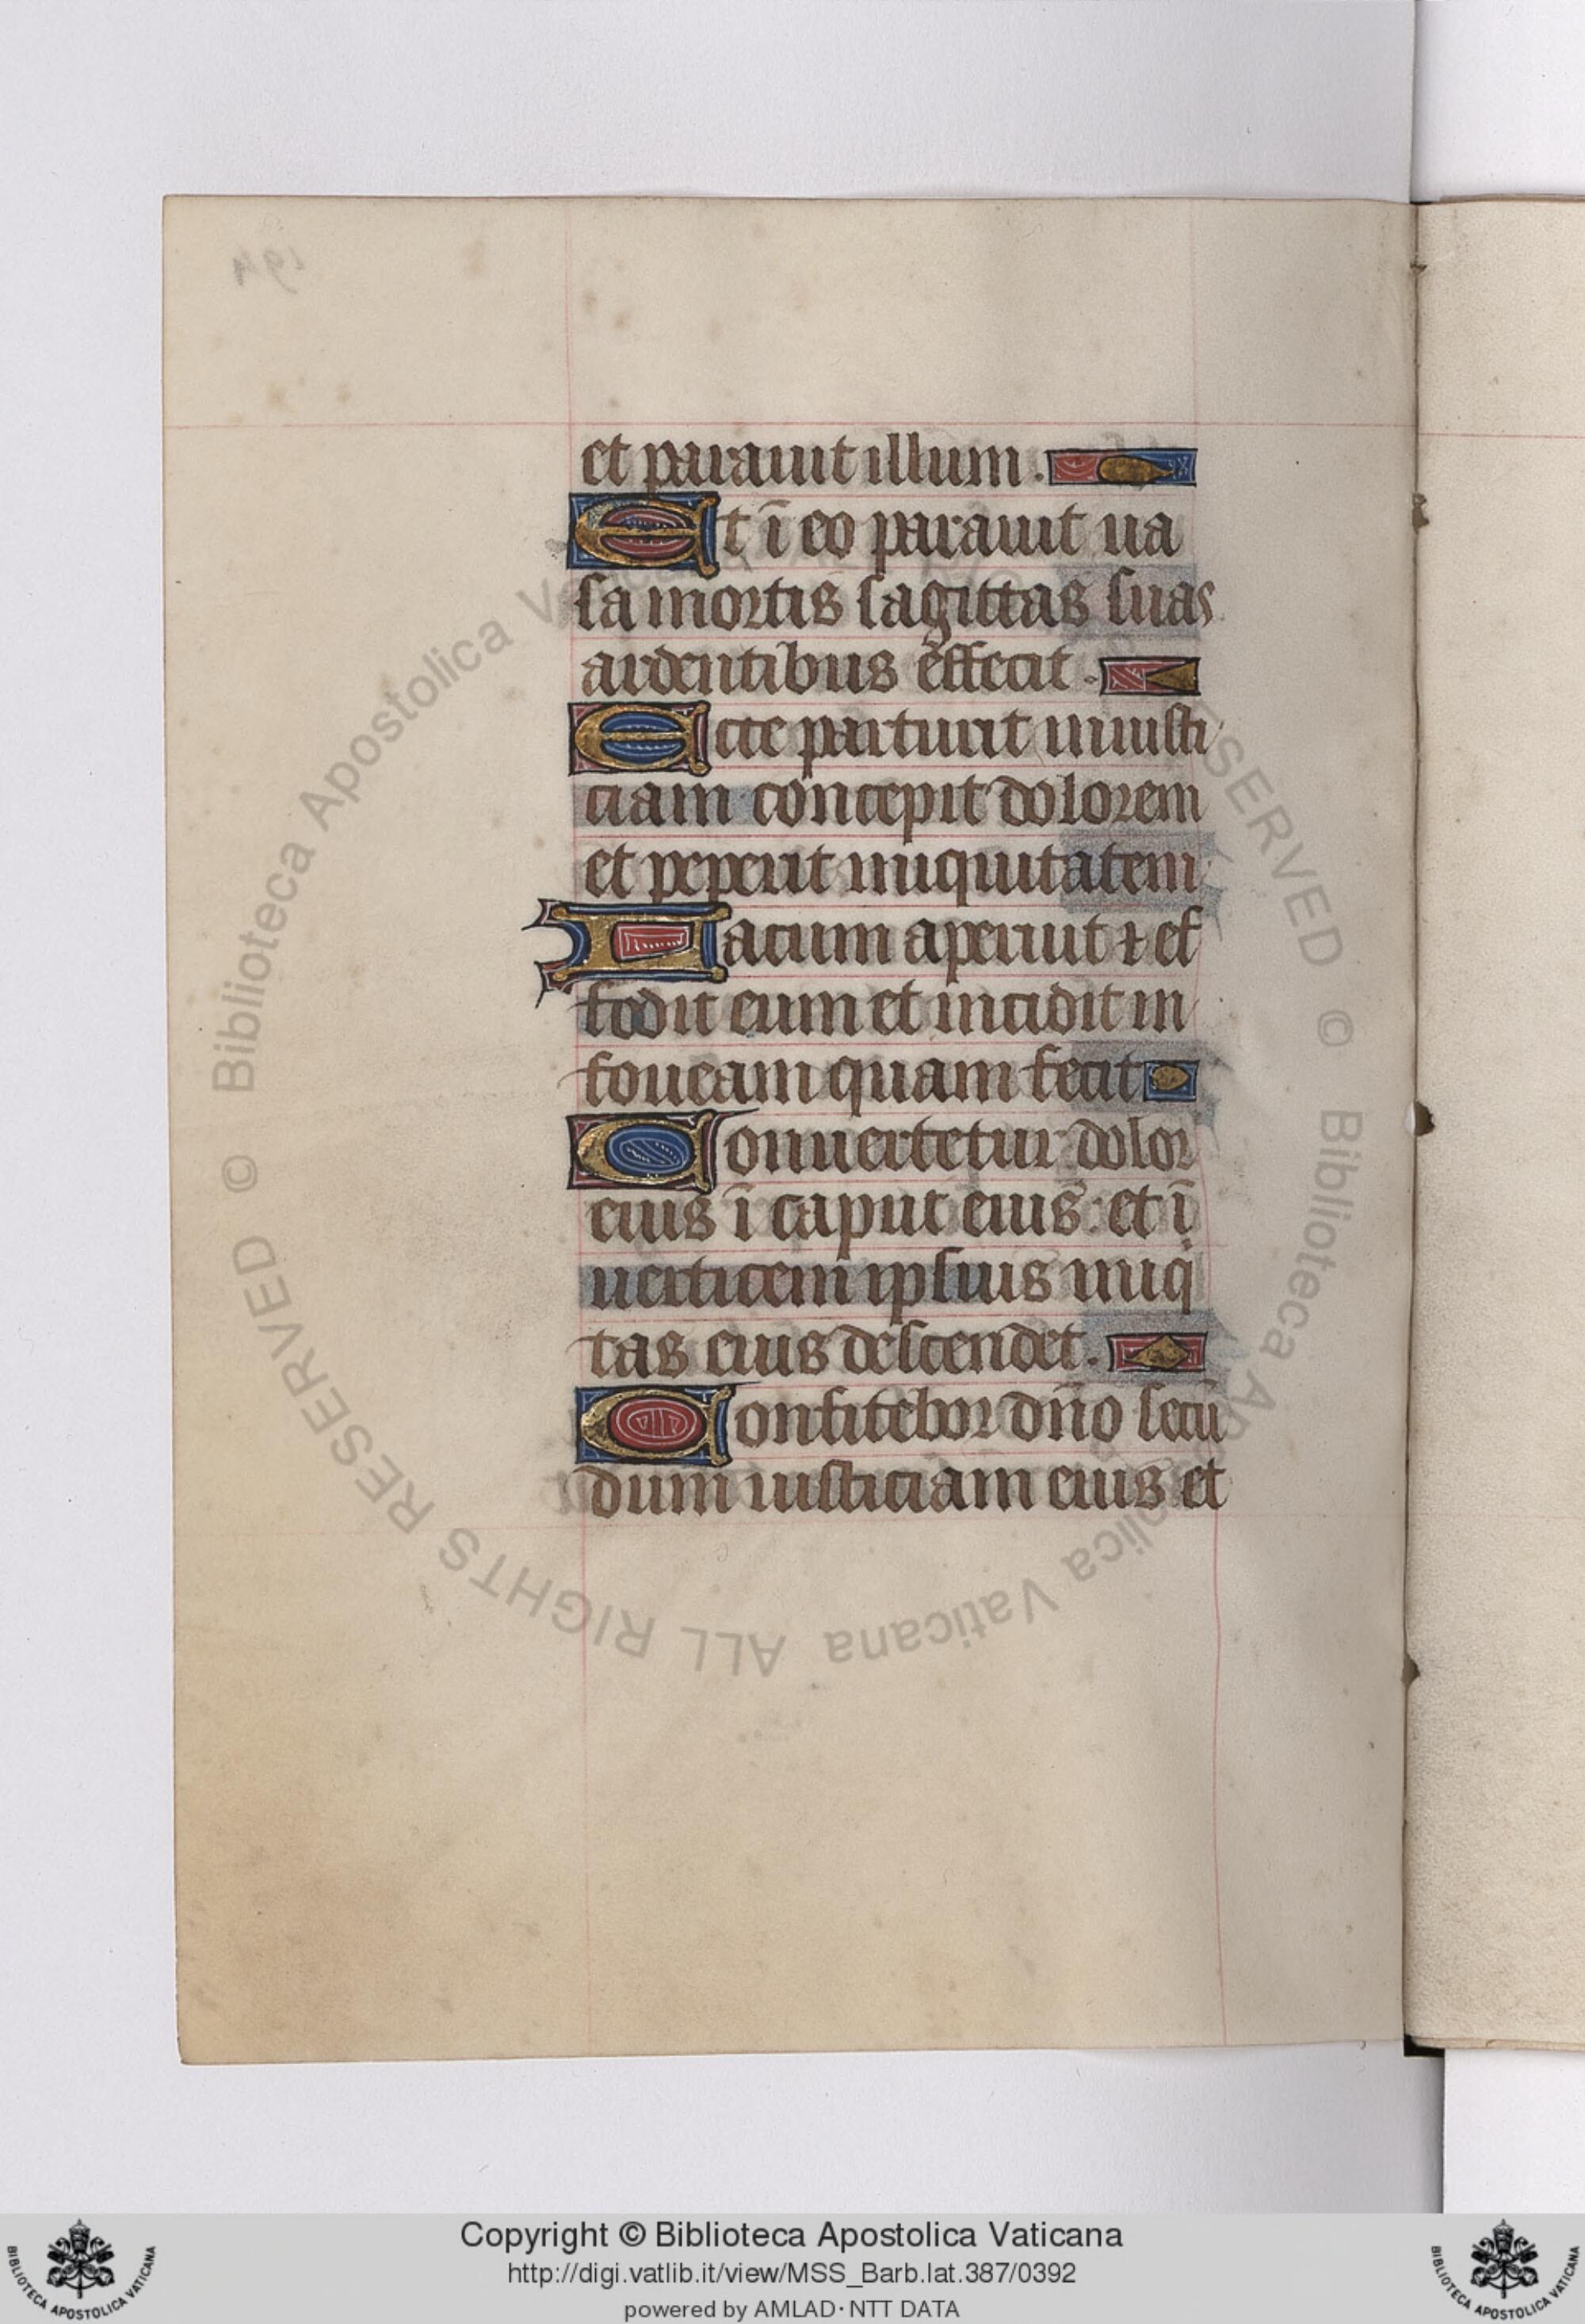 et parauit illum.
Et ī eo parauit ua
sa mortis sagittas suas
ardentibus effecit.
Ecce parturit iniusti
ciam concepit dolorem
et peperit iniquitatem
Lacum aperuit ⁊ ef
fodit eum et incidit in
foueam quam fecit
Conuertetur dolor
eius ī caput eius: et ī
uerticem ipsius iniq
tas eius descendet.
Confitebor dn̄o secū
dum iusticiam eius et
© Biblioteca Apostolica Vaticana ALL RIGHTS RESERVED
Copyright © Biblioteca Apostolica Vaticana
http://digi.vatlib.it/view/MSS_Barb.lat.387/0392
powered by AMLAD·NTT DATA
BIBLIOTECA APOSTOLICA VATICANA
BIBLIOTECA APOSTOLICA VATICANA